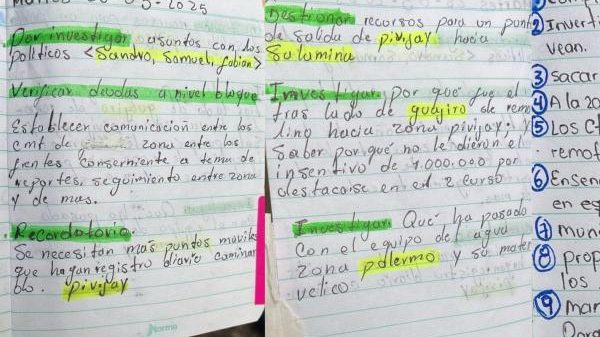 05-2025
Por investigar asuntos con los
políticos <Sandro, Samuel, Fabian>
Verificar deudas a nivel bloque
Establecer comunicación entre los
cmt de zona entre los
frentes conserniente a tema de
reportes, seguimiento entre zona
y de mas.
Recordatorio.
Se necesitan mas puntos moviles
que hagan registro diario caminar
blo. pivijay
Norma
Gestionar recursos para un punt
de salida de pivijay hacia
Salamina
Investigar por qué fue el
tras lado de guajiro de remo
lino hacia zona pivijay; y
Saber por qué no le dieron el
insentivo de 1.000.000 por
destacarse en el 2 curso
Investigar Qué ha pasado
Con el equipo de agua
zona palermo y su mater
velico
② Inverti
vean.
③ sacar
④ A la 20
⑤ Los C
remot
⑥ Ensen
en es
⑦ mun
⑧ prop
los
⑨ mar